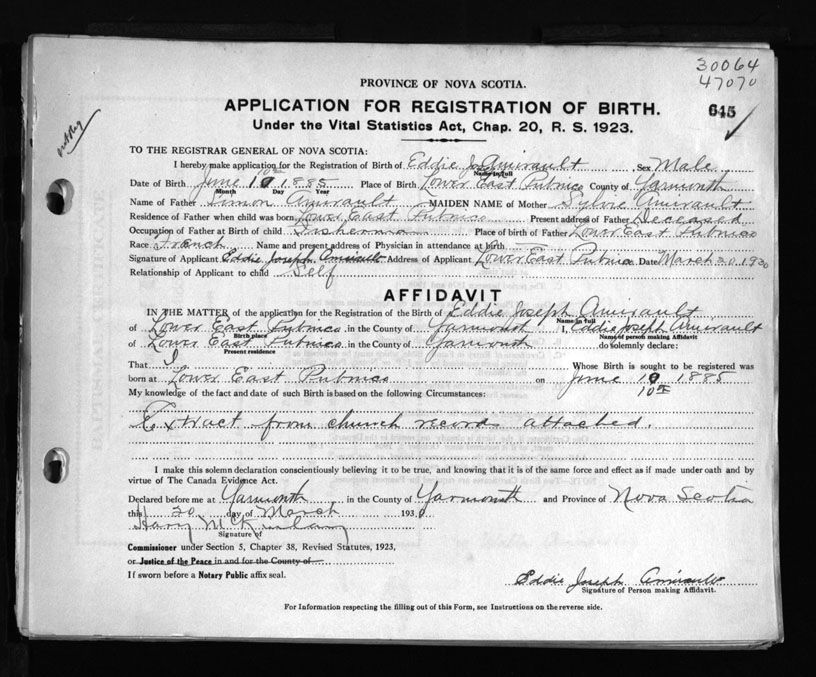 30064
47070
PROVINCE OF NOVA SCOTIA.
APPLICATION FOR REGISTRATION OF BIRTH.
645
Under the Vital Statistics Act, Chap. 20, R. S. 1923.
TO THE REGISTRAR GENERAL OF NOVA SCOTIA:
I hereby make application for the Registration of Birth of Eddie J. Amirault Sex Male
Name in full
Date of Birth June 10 10th 1885 Place of Birth Lower East Pubnico County of Yarmouth
Month Day Year
Name of Father Simon Amirault MAIDEN NAME of Mother Sylvie Amirault
Residence of Father when child was born Lower East Pubnico Present address of Father Deceased
Occupation of Father at Birth of child Fisherman Place of birth of Father Lower East Pubnico
Race French Name and present address of Physician in attendance at birth
Signature of Applicant Eddie Joseph Amirault Address of Applicant Lower East Pubnico Date March 20 1930
Relationship of Applicant to child Self
AFFIDAVIT
IN THE MATTER of the application for the Registration of the Birth of Eddie Joseph Amirault
Name in full
of Lower East Pubnico in the County of Yarmouth I, Eddie Joseph Amirault
Birth place Name of person making Affidavit
of Lower East Pubnico in the County of Yarmouth do solemnly declare:
Present residence
That I Whose Birth is sought to be registered was
born at Lower East Pubnico on June 10 1885
10th
My knowledge of the fact and date of such Birth is based on the following Circumstances:
Extract from church records attached.
I make this solemn declaration conscientiously believing it to be true, and knowing that it is of the same force and effect as if made under oath and by
virtue of The Canada Evidence Act.
Declared before me at Yarmouth in the County of Yarmouth and Province of Nova Scotia
this 20 day of March 1930
Harry McKinlay
Signature of
Commissioner under Section 5, Chapter 38, Revised Statutes, 1923,
or Justice of the Peace in and for the County of
If sworn before a Notary Public affix seal.
Eddie Joseph Amirault
Signature of Person making Affidavit.
For Information respecting the filling out of this Form, see Instructions on the reverse side.